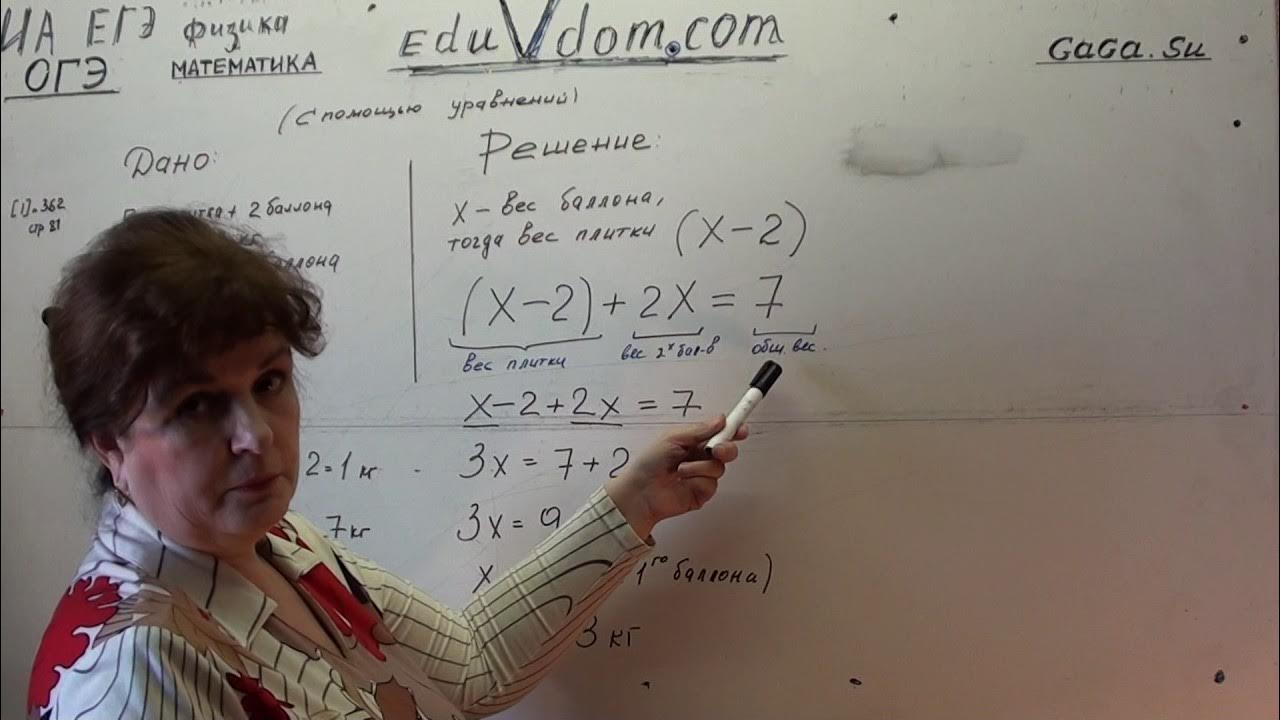 ИА ЕГЭ физика
ОГЭ МАТЕМАТИКА
EduVdom.com
GaGa.Su
(С помощью уравнений)
Дано:
[1]. 362
стр 81
+ 2 баллона
Решение:
х – вес баллона,
тогда вес плитки (х–2)
(х–2) + 2х = 7
вес плитки вес 2х бал-в общ. вес.
х–2+2х = 7
2=1 кг
3х = 7+2
7 кг
3х = 9
х 1го баллона)
3 кг